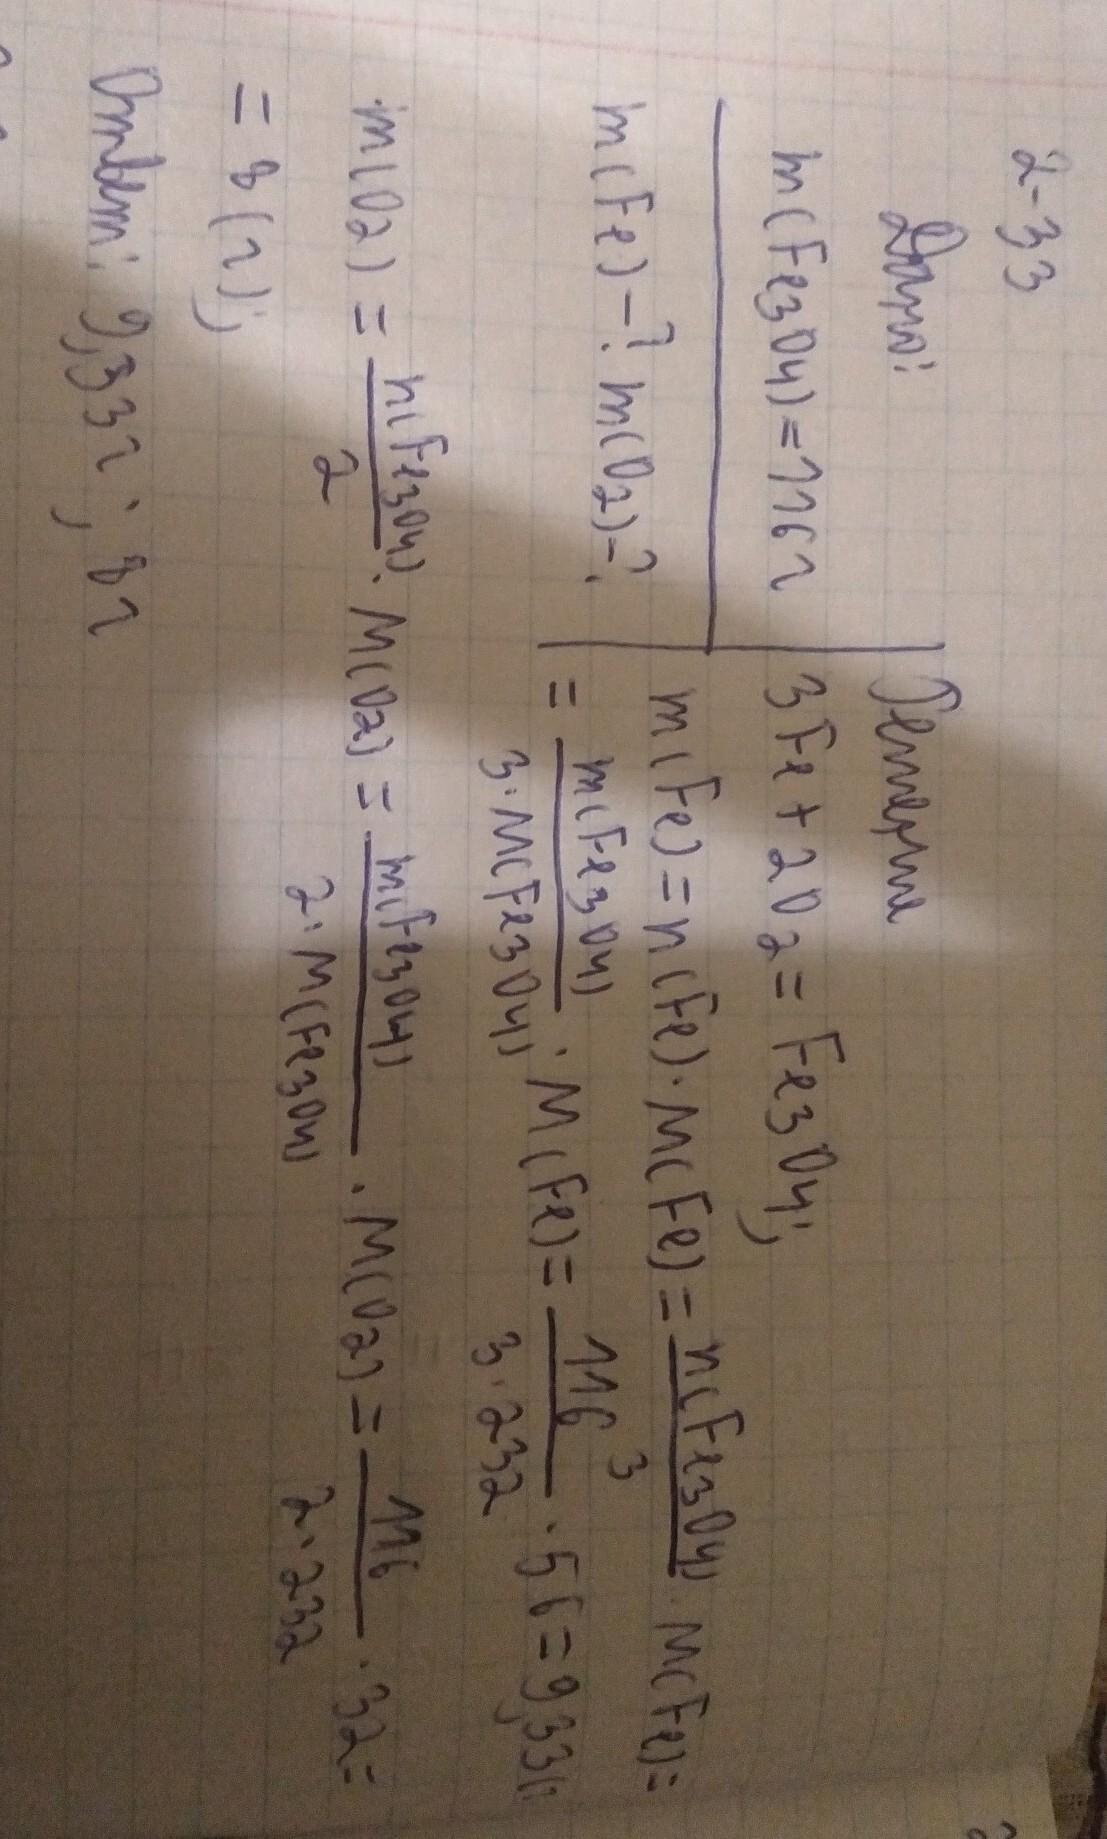 2-33
Дано:
m(Fe3O4)=116г
m(Fe)-? m(O2)-?
Решение
3Fe+2O2=Fe3O4;
m(Fe)=n(Fe)·M(Fe)=n(Fe3O4)/3·M(Fe)=
=m(Fe3O4)/3·M(Fe3O4)·M(Fe)=116/3·232·56=9,33(г
m(O2)=n(Fe3O4)/2·M(O2)=m(Fe3O4)/2·M(Fe3O4)·M(O2)=116/2·232·32=
=8(г);
Ответ: 9,33г; 8г